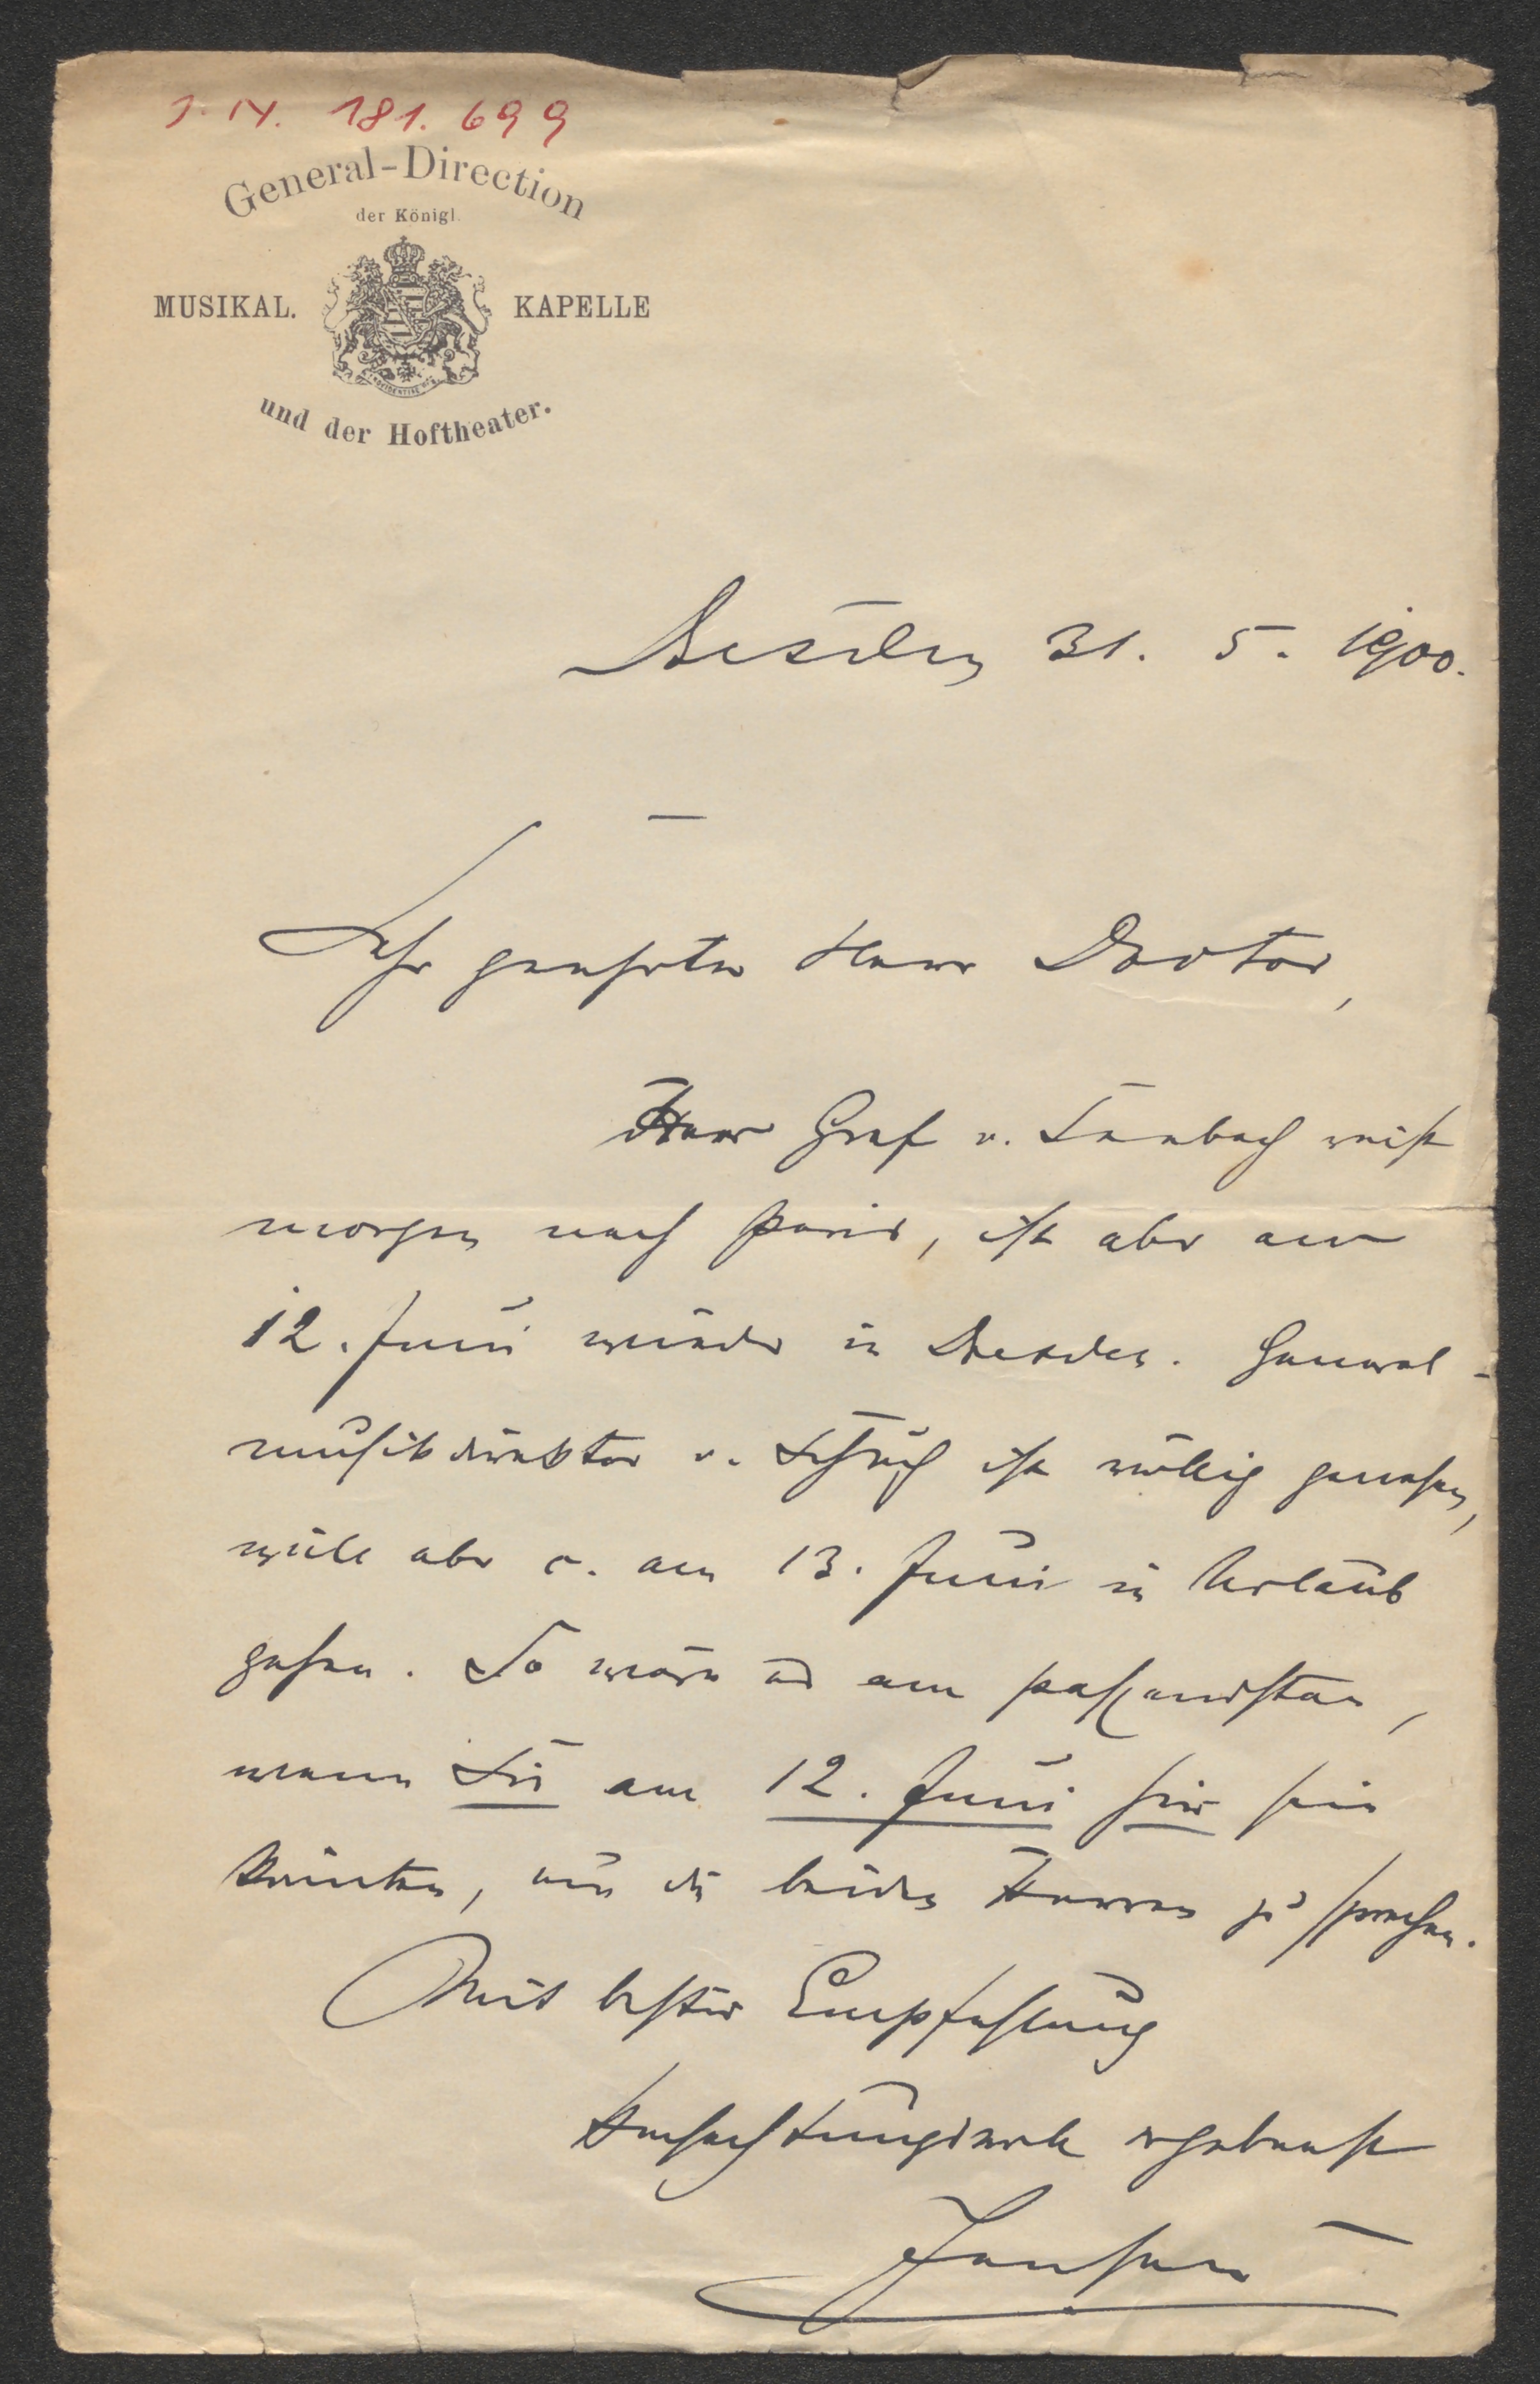 J. N. 181.699
General-Direction
der Königl.
MUSIKAL. KAPELLE
und der Hoftheater.
Dresden 31. 5. 1900.
Sehr geehrter Herr Doctor,
Herr Graf v. Seebach reist
morgen nach Paris, ist aber am
12. Juni wieder in Dresden. General-
musikdirektor v. Schuch ist völlig genesen,
will aber c. am 13. Juni in Urlaub
gehen. So wäre es am passendsten,
wenn Sie am 12. Juni hier sein
könnten, um die beiden Herren zu sprechen.
Mit bester Empfehlung
Hochachtungsvoll ergebenst